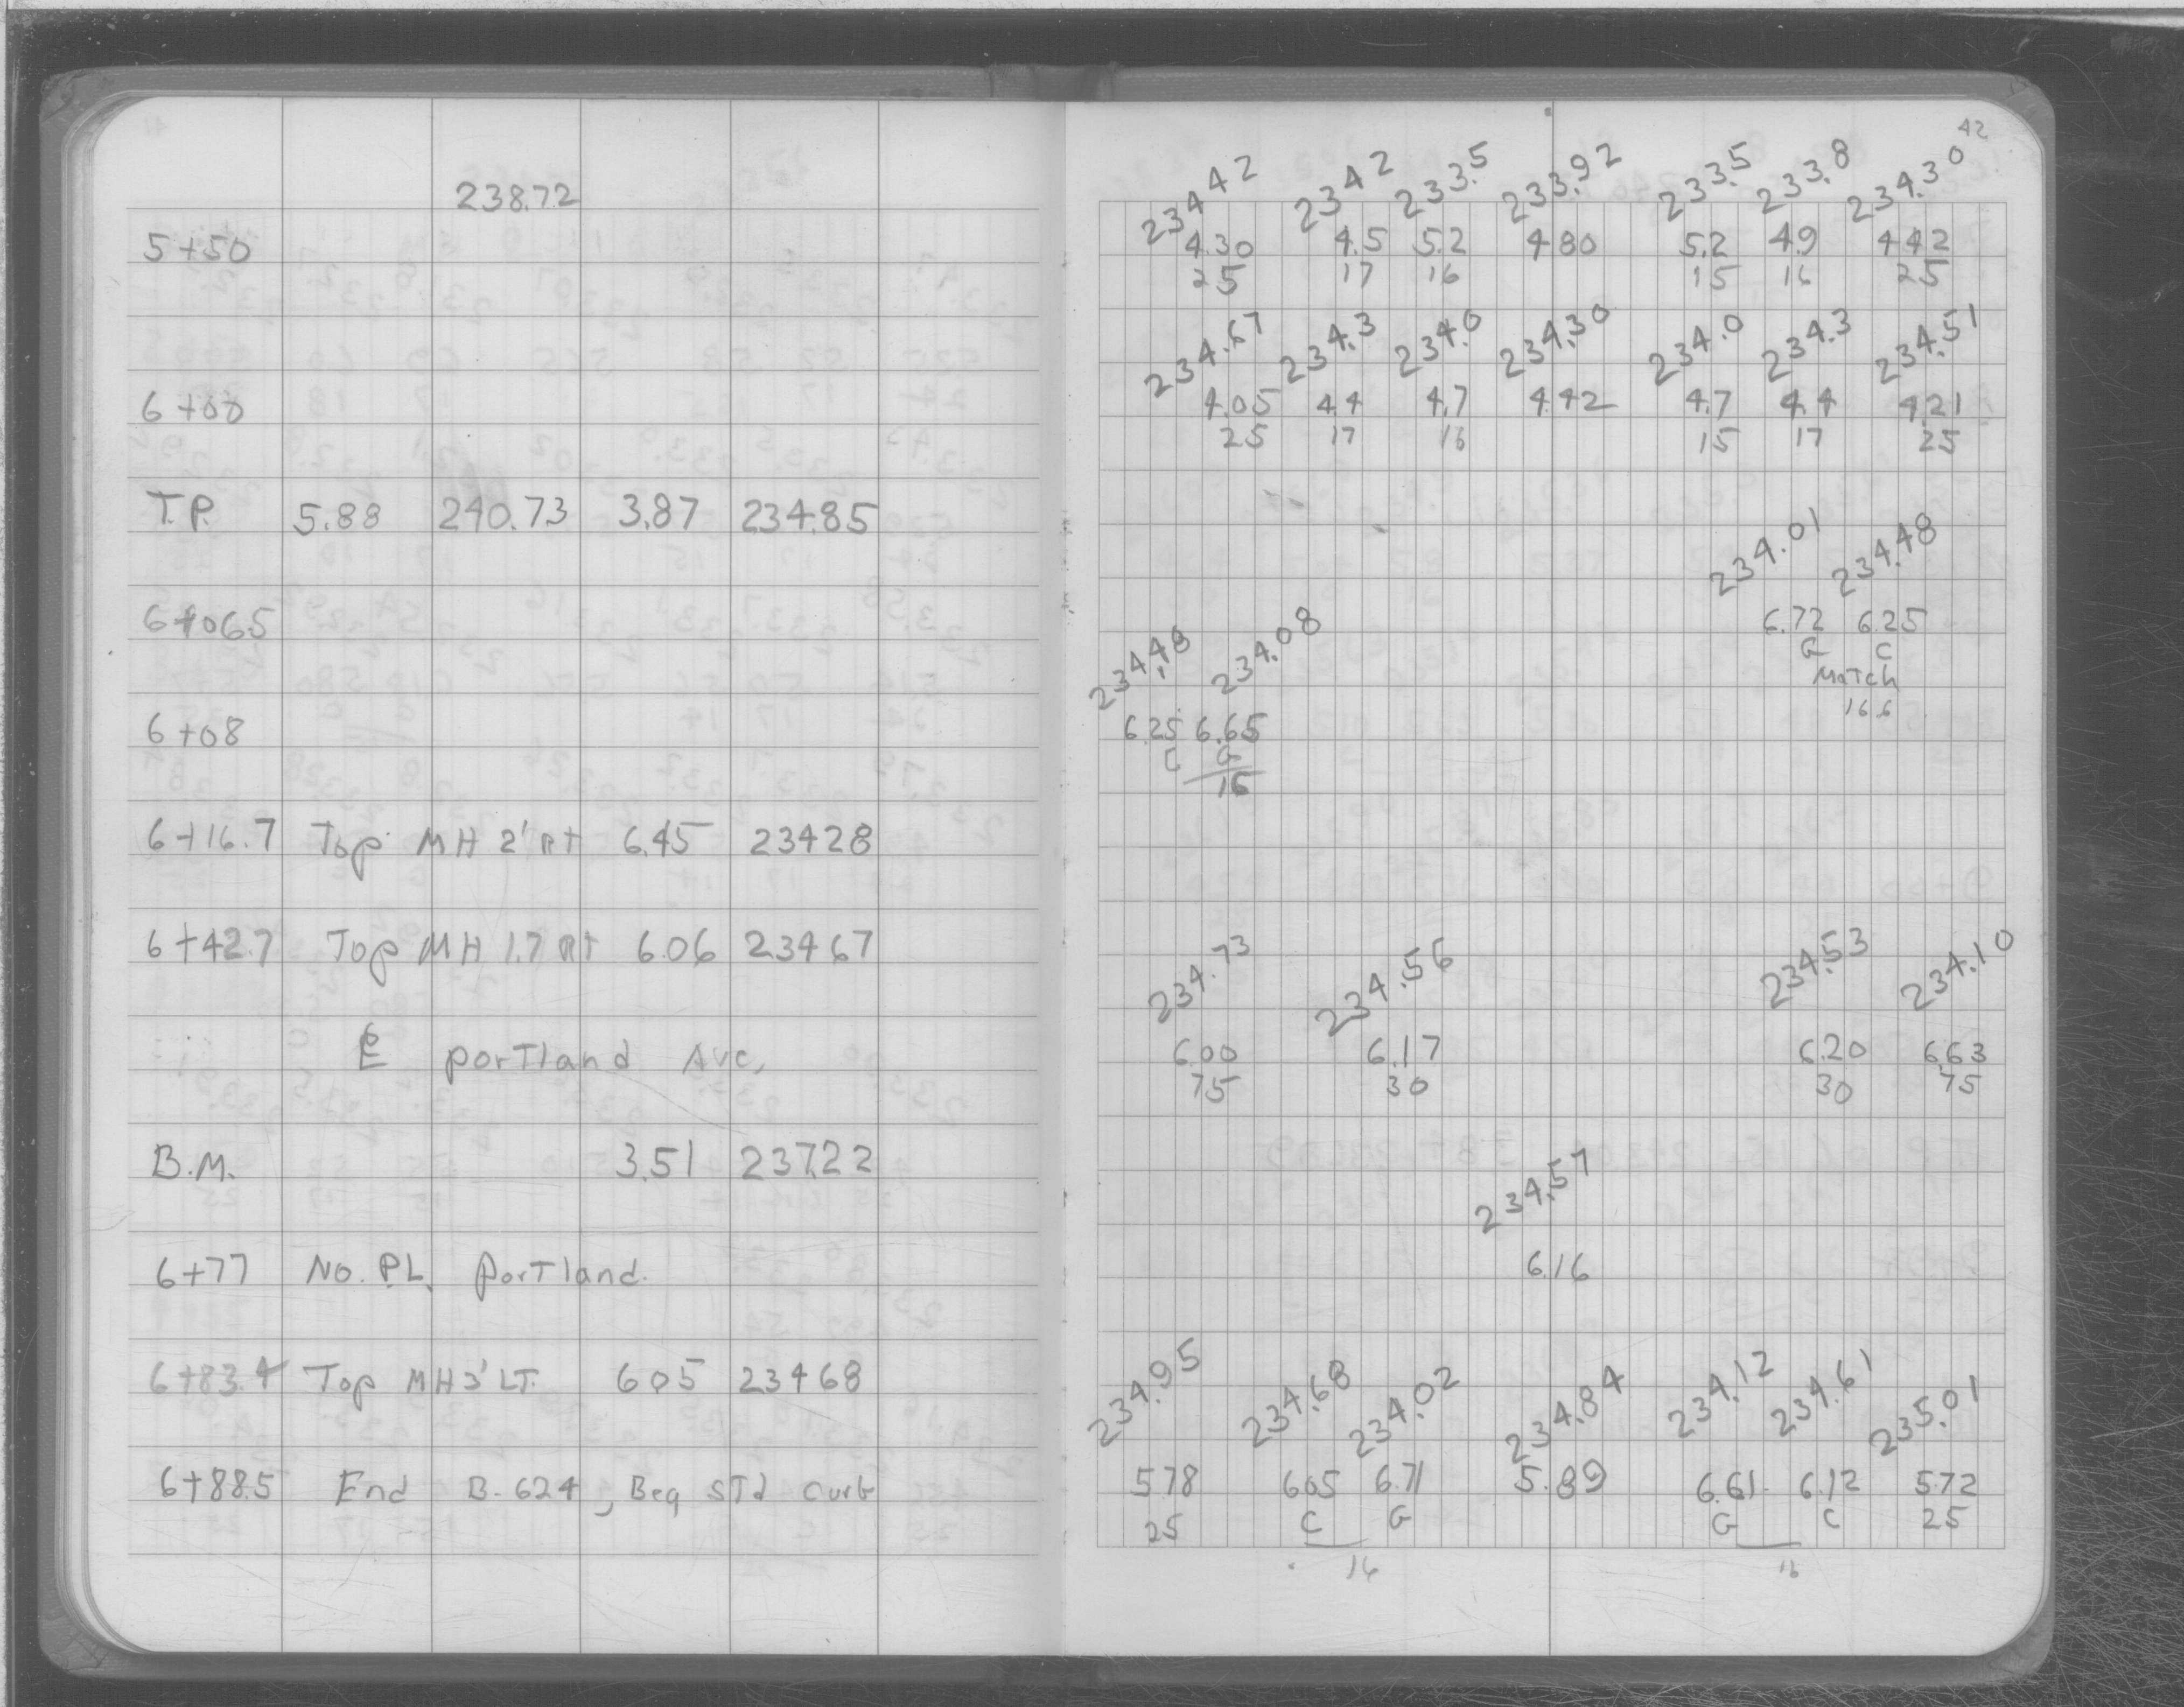 238.72
5+50
6+00
T.P. 5.88 240.73 3.87 234.85
6+06.5
6+08
6+16.7 Top MH 2' RT 6.45 234 28
6+42.7 Top MH 1.7 RT 6.06 234 67
℄ Portland Ave.
B.M. 3.51 237.22
6+77 No. P.L. Portland.
6+83.4 Top MH 3' LT. 6 05 234 68
6+88.5 End B-624, Beg STd curb
42
234 42 234 2 233.5 233.92 233.5 233.8 234.30
4.30 4.5 5.2 4 80 5.2 4.9 4 42
25 17 16 15 16 25
234.67 234.3 234.0 234.30 234.0 234.3 234.51
4.05 4.4 4.7 4.42 4.7 4.4 4.21
25 17 16 15 17 25
234.01 234.48
6.72 6.25
G C
Match
16.6
234.48 234.08
6.25 6.65
C G
16
234.73 234.56 234.53 234.10
6.00 6.17 6.20 6.63
75 30 30 75
234.57
6.16
234.95 234.68 234.02 234.84 234.12 234.61 235.01
5.78 6.05 6.71 5.89 6.61 6.12 5.72
25 C G G C 25
16 16